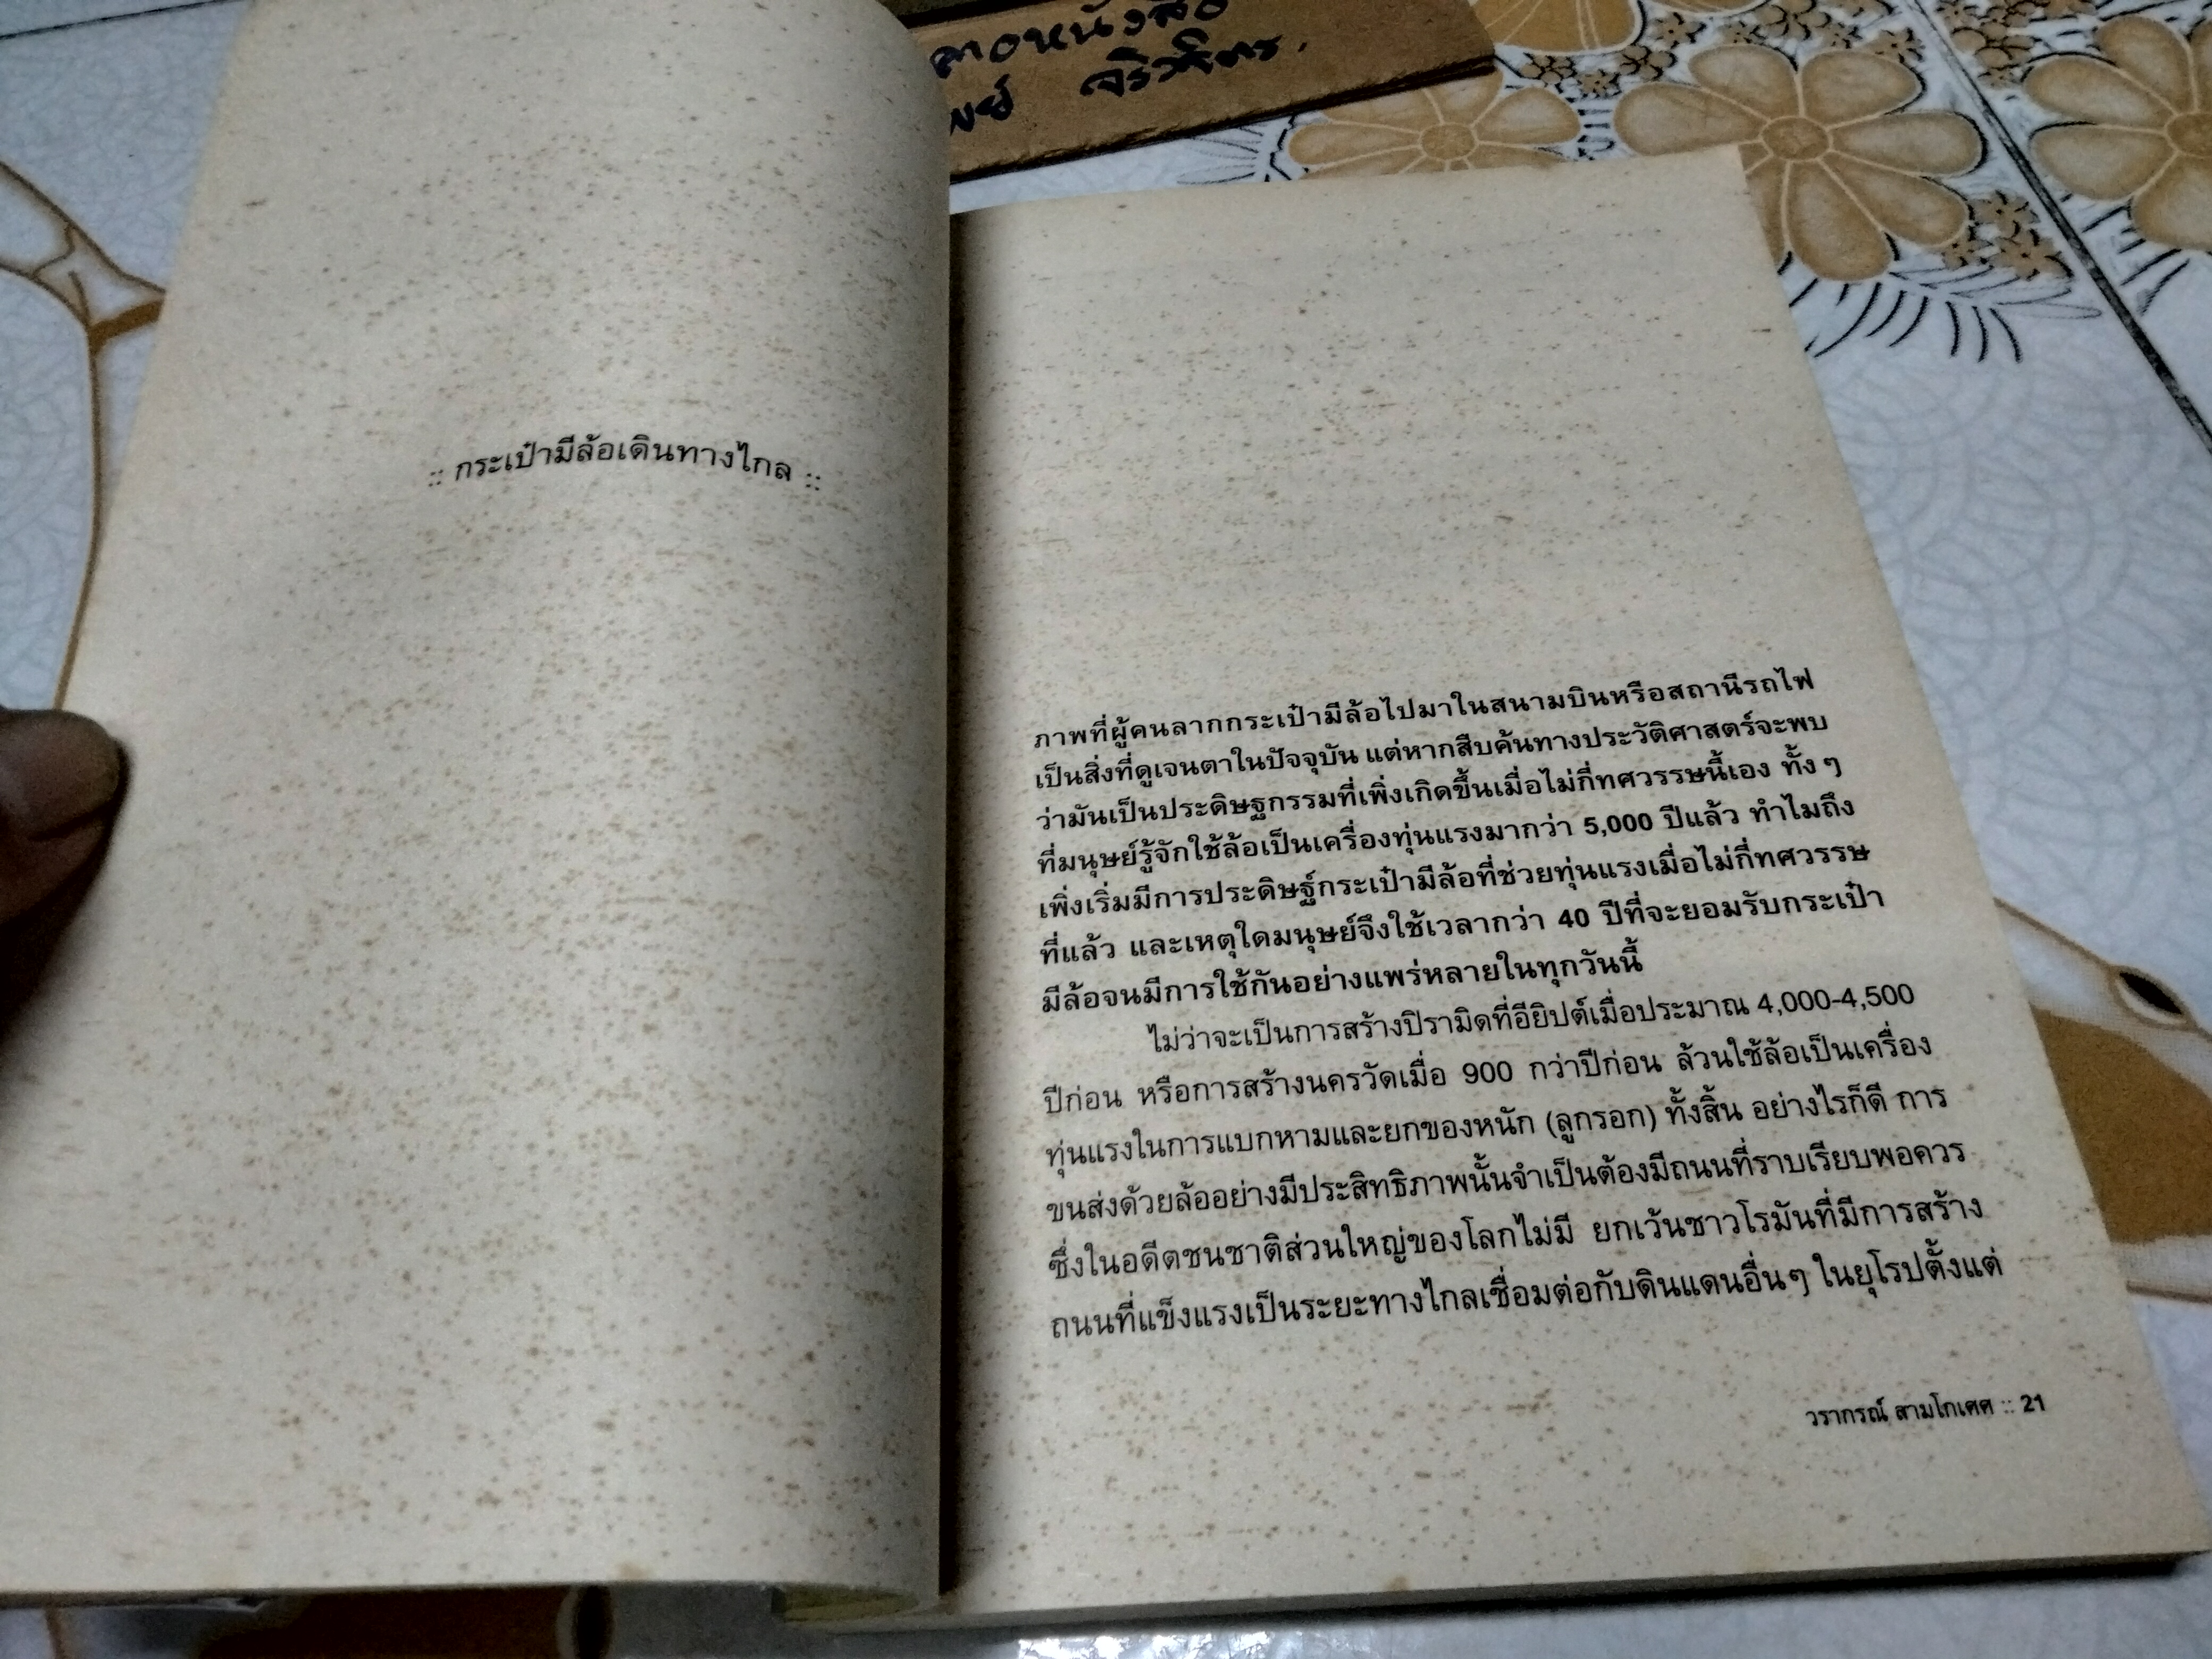 างหนังสือ
:: กระเป๋ามีล้อเดินทางไกล ::
ภาพที่ผู้คนลากกระเป๋ามีล้อไปมาในสนามบินหรือสถานีรถไฟ
เป็นสิ่งที่ดูเจนตาในปัจจุบัน แต่หากสืบค้นทางประวัติศาสตร์จะพบ
ว่ามันเป็นประดิษฐกรรมที่เพิ่งเกิดขึ้นเมื่อไม่กี่ทศวรรษนี้เอง ทั้งๆ
ที่มนุษย์รู้จักใช้ล้อเป็นเครื่องทุ่นแรงมากว่า 5,000 ปีแล้ว ทำไมถึง
เพิ่งเริ่มมีการประดิษฐ์กระเป๋ามีล้อที่ช่วยทุ่นแรงเมื่อไม่กี่ทศวรรษ
ที่แล้ว และเหตุใดมนุษย์จึงใช้เวลากว่า 40 ปีที่จะยอมรับกระเป๋า
มีล้อจนมีการใช้กันอย่างแพร่หลายในทุกวันนี้
ไม่ว่าจะเป็นการสร้างปิรามิดที่อียิปต์เมื่อประมาณ 4,000-4,500
ปีก่อน หรือการสร้างนครวัดเมื่อ 900 กว่าปีก่อน ล้วนใช้ล้อเป็นเครื่อง
ทุ่นแรงในการแบกหามและยกของหนัก (ลูกรอก) ทั้งสิ้น อย่างไรก็ดี การ
ขนส่งด้วยล้ออย่างมีประสิทธิภาพนั้นจำเป็นต้องมีถนนที่ราบเรียบพอควร
ซึ่งในอดีตชนชาติส่วนใหญ่ของโลกไม่มี ยกเว้นชาวโรมันที่มีการสร้าง
ถนนที่แข็งแรงเป็นระยะทางไกลเชื่อมต่อกับดินแดนอื่นๆ ในยุโรปตั้งแต่
วรากรณ์ สามโกเศศ :: 21